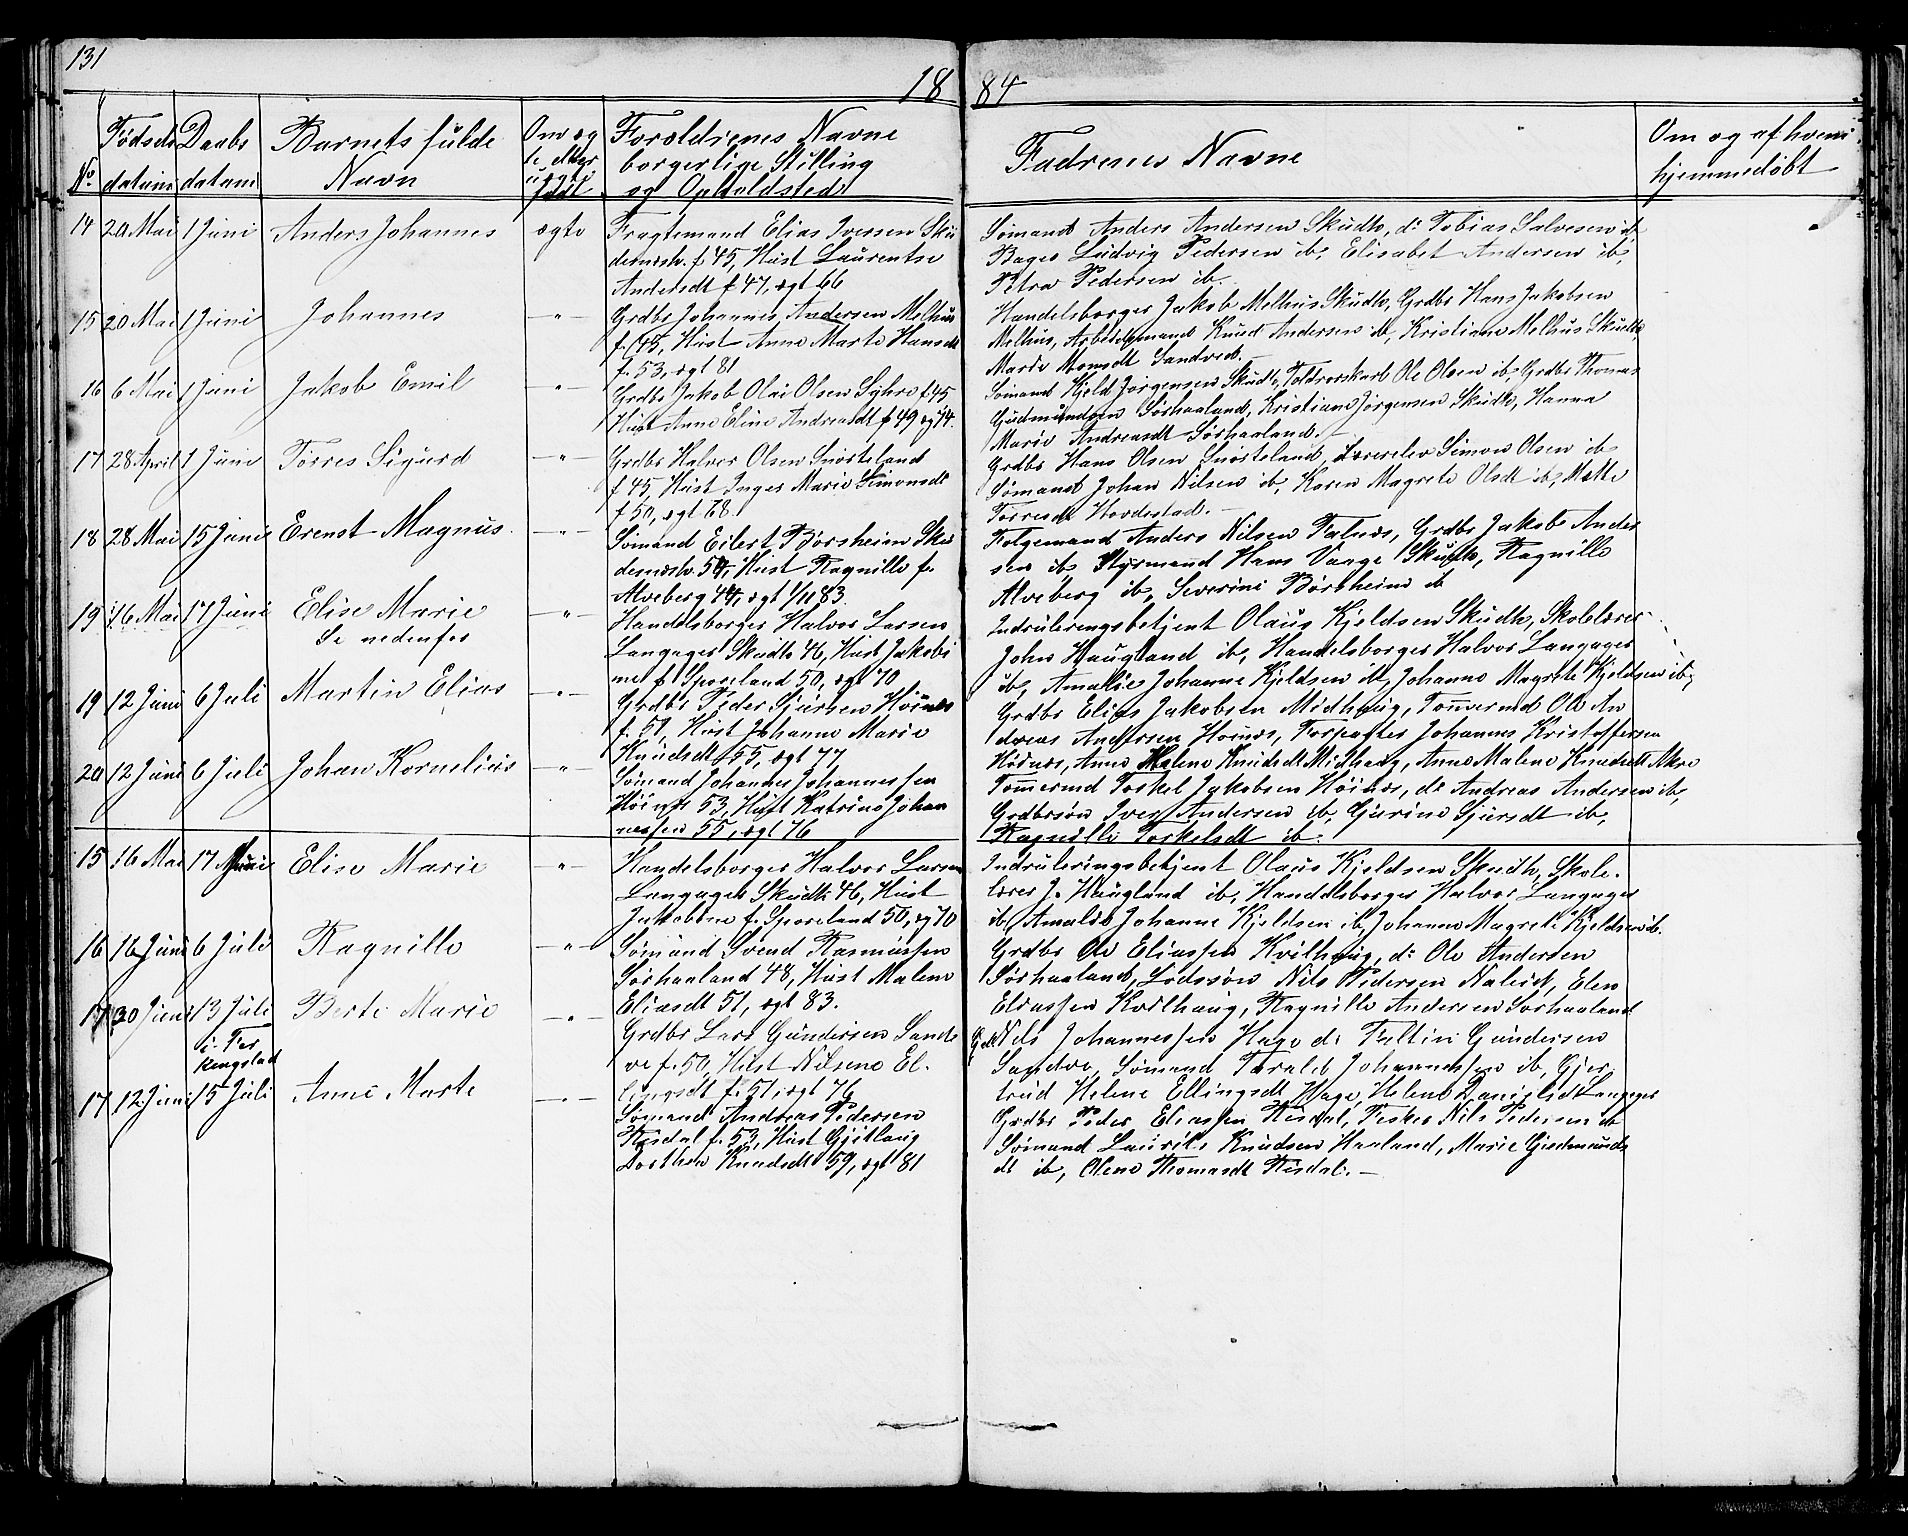 131
18 84
No
Fødsels
datum
Daabs
datum
Barnets fulde
Navn
Om æg
te eller
uægte
født
Forældrenes Navne
borgerlige Stilling
og Opholdsted
Fadrenes Navne
Om og af hvem
hjemmedøbt
14 20 Mai 1 Juni Anders Johannes ægte
Fragtemand Elias Iversen Sku
desnesh. f 45, Hust Laurentse
Andersdt f 47, ægt 66
Sømand Anders Andersen Skudh, do Tobias Salvesen ib
Bager Ludvig Pedersen ib, Elisabet Andersen ib,
Petra Pedersen ib.
15 20 Mai 1 Juni Johannes -"-
Grdbr Johannes Andersen Melhus
f. 45, Hust Anne Marte Hansdt
f. 53, ægt 81
Handelsborger Jakob Melhus Skudh, Grdbr Hans Jakobsen
Melhus, Arbeidsmand Knud Andersen ib, Kristiane Melhus Skudh,
Marie Monsdt Sandved. -
16 6 Mai 1 Juni Jakob Emil -"-
Grdbr Jakob Olai Olsen Syhre f 45
Hust Anne Eline Andreasdt f 49 æg 74.
Sømand Kjeld Jørgensen Skudh, Toldroerskarl Ole Olsen ib, Grdbr Thomas
Gudmundsen Sørhaaland, Kristiane Jørgensen Skudh, Hanna
Marie Andreasdt Sørhaaland. -
17 28 April 1 Juni Torres Sigurd -"-
Grdbr Halvor Olsen Snørteland
f 45, Hust Inger Marie Simonsdt
f 50, ægt 78.
Grdbr Hans Olsen Snørteland, Lærerelev Simon Olsen ib
Sømand Johan Nilsen ib, Karen Magrete Olsdt ib, Mette
Torresdt Hovdestad. -
18 28 Mai 15 Juni Erenst Magnus. -"-
Sømand Eilert Børsheim Sku
desnesh. 54, Hust Ragnille f.
Alveberg 44, ægt 1/11 83.
Følgemand Anders Nilsen Falnæs, Grdbr Jakob Ander
sen ib Styrmand Hans Vaage Skudh, Ragnille
Alveberg ib, Severine Børsheim ib
19 16 Mai 17 Juni Elise Marie -"-
Se nedenfor
Handelsborger Halvor Larsen
Langager Skudh 46, Hust Jakobi
ne f Sposeland 50, ægt 70
Indruleringsbetjent Olaus Kjeldsen Skudh, Skolelærer
John Haugland ib, Handelsborger Halvor Langager
ib, Amalie Johanne Kjeldsen ib, Johanne Magrete Kjeldsen ib,
19 12 Juni 6 Juli Martin Elias -"-
Grdbr Peder Sjursen Høines
f. 51, Hust Johanne Marie
Knudsdt 55, ægt 77
Grdbr Elias Jakobsen Midhaug, Tømermd Ole An
dreas Andersen Høines, Forpagter Johannes Kristoffersen
Høines, Anne Malene Knudsdt Midhaug, Anne Malene Knudsdt Akre
20 12 Juni 6 Juli Johan Kornelius -"-
Sømand Johannes Johannessen
Høines 53, Hust Katrine Johan
nessen 55, ægt 76
Tømermd Torkel Jakobsen Høines, do Andreas Andersen ib,
Grdbrsøn Iver Andersen ib, Gurine Sjursdt ib,
Ragnille Torkelsdt ib.
15 16 Mai 17 Juni Elise Marie -"-
Handelsborger Halvor Larsen
Langager Skudh 46, Hust
Jakobine f. Sposeland 50, æg 70
Indruleringsbetjent Olaus Kjeldsen Skudh, Skole-
lærer J. Haugland ib, Handelsborger Halvor Langager
ib, Amalie Johanne Kjeldsen ib, Johanne Magrete Kjeldsen ib.
16 16 Juni 6 Juli Ragnille -"-
Sømand Svend Rasmussen
Sørhaaland 48, Hust Malene
Eliasdt 51, ægt 83.
Grdbr Ole Eliassen Kvilhaug, do Ole Andersen
Sørhaaland, Lodssøn Nils Pedersen Naleid, Elen
Eliassen Kvilhaug, Ragnille Andersen Sørhaaland
17 30 Juni 13 Juli Berte Marie -"-
i Fer
kengstad
Grdbr Lars Gundersen Sand
ve f. 50, Hust Nilsene El-
lingsdt f. 51, ægt 76
Nils Johannessen Hage do Faltin Gundersen
Sandve, Sømand Tarald Johannessen ib, Gjer
trud Helene Ellingsdt Hage, Helene Danielsdt Langager
17 12 Juni 15 Juli Anne Marte -"-
Sømand Andreas Pedersen
Risdal f. 53, Hust Gjitlaug
Dorthea Knudsdt 59, ægt 81
Grdbr Peder Eliassen Risdal, Fisker Nils Pedersen ib
Sømand Laurits Knudsen Haaland, Marie Gudmunds
dt ib, Olene Thomasdt Risdal. -